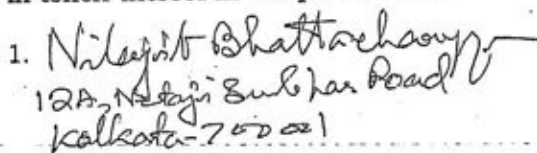 1. Nilajit Bhattacharyya
12A, Netaji Subhas Road
Kolkata-700001